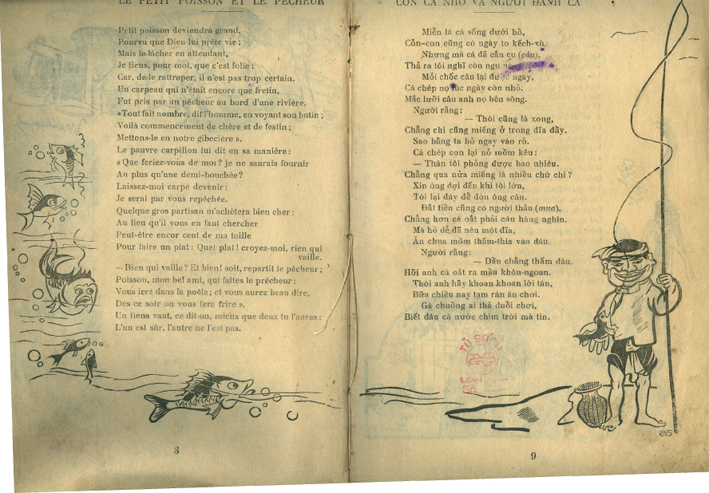 LE PETIT POISSON ET LE PECHEUR
Petit poisson deviendra grand,
Pourvu que Dieu lui prête vie ;
Mais le lâcher en attendant,
Je tiens, pour moi, que c'est folie :
Car, de le rattraper, il n'est pas trop certain.
Un carpeau qui n'était encore que fretin,
Fut pris par un pêcheur au bord d'une rivière,
«Tout fait nombre, dit l'homme, en voyant son butin ;
Voilà commencement de chère et de festin ;
Mettons-le en notre gibecière ».
Le pauvre carpillon lui dit en sa manière :
« Que feriez-vous de moi ? je ne saurais fournir
Au plus qu'une demi-bouchée ?
Laissez-moi carpe devenir :
Je serai par vous repêchée.
Quelque gros partisan m'achètera bien cher :
Au lieu qu'il vous en faut chercher
Peut-être encor cent de ma taille
Pour faire un plat : Quel plat ! croyez-moi, rien qui
vaille.
— Rien qui vaille ? Et bien ! soit, repartit le pêcheur ;
Poisson, mon bel ami, qui faites le prêcheur :
Vous irez dans la poële ; et vous aurez beau dire,
Dès ce soir on vous fera frire ».
Un tiens vaut, ce dit-on, mieux que deux tu l'auras :
L'un est sûr, l'autre ne l'est pas.
8
CON CÁ NHỎ VÀ NGƯỜI ĐÁNH CÁ
Miễn là cá sống dưới hồ,
Cỏn-con cũng có ngày to kếch-xù.
Nhưng mà cá đã cắn cu (câu),
Thả ra tôi nghĩ còn ngu
Mồi chốc câu lại được ngay,
Cá chép nọ lúc ngày còn nhỏ,
Mắc lưỡi câu anh nọ bên sông.
Người rằng :
— Thôi cũng là xong,
Chẳng chi cũng miếng ở trong đĩa đầy.
Sao bằng ta bỏ ngay vào rỏ.
Cá chép con lại nỏ mồm kêu :
— Thân tôi phỏng được bao nhiêu.
Chẳng qua nửa miếng là nhiều chứ chi ?
Xin ông đợi đến khi tôi lớn,
Tôi lại đây để đón ông câu.
Đắt tiền cũng có người thâu (mua),
Chẳng hơn cá oắt phải câu hàng nghìn.
Mà hồ dễ đã nên một đĩa,
Ăn chua mồm thấm-thía vào đâu.
Người rằng :
— Đền chẳng thấm đâu.
Hỡi anh cá oắt ra mầu khôn-ngoan.
Thôi anh hãy khoan khoan lời tán,
Bữa chiều nay tạm rán ăn chơi.
Gà chuồng ai thả đuổi chơi,
Biết đâu cá nước chim trời mà tin.
TỦ SÁCH
9